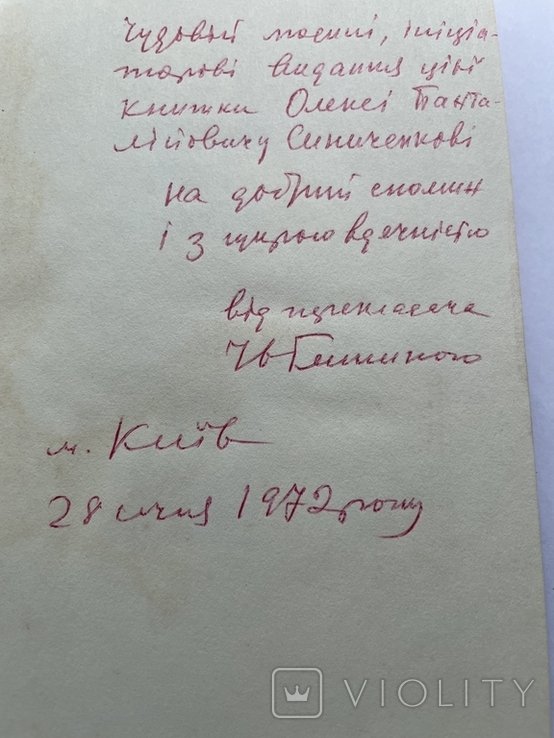 чудовій людині, ініціа-
торові видання цієї
книжки Олексі Панта-
лійовичу Синиченкові
на добрий спомин
і з щирою вдячністю
від перекладача
м. Київ
28 січня 1972 року
VIOLITY